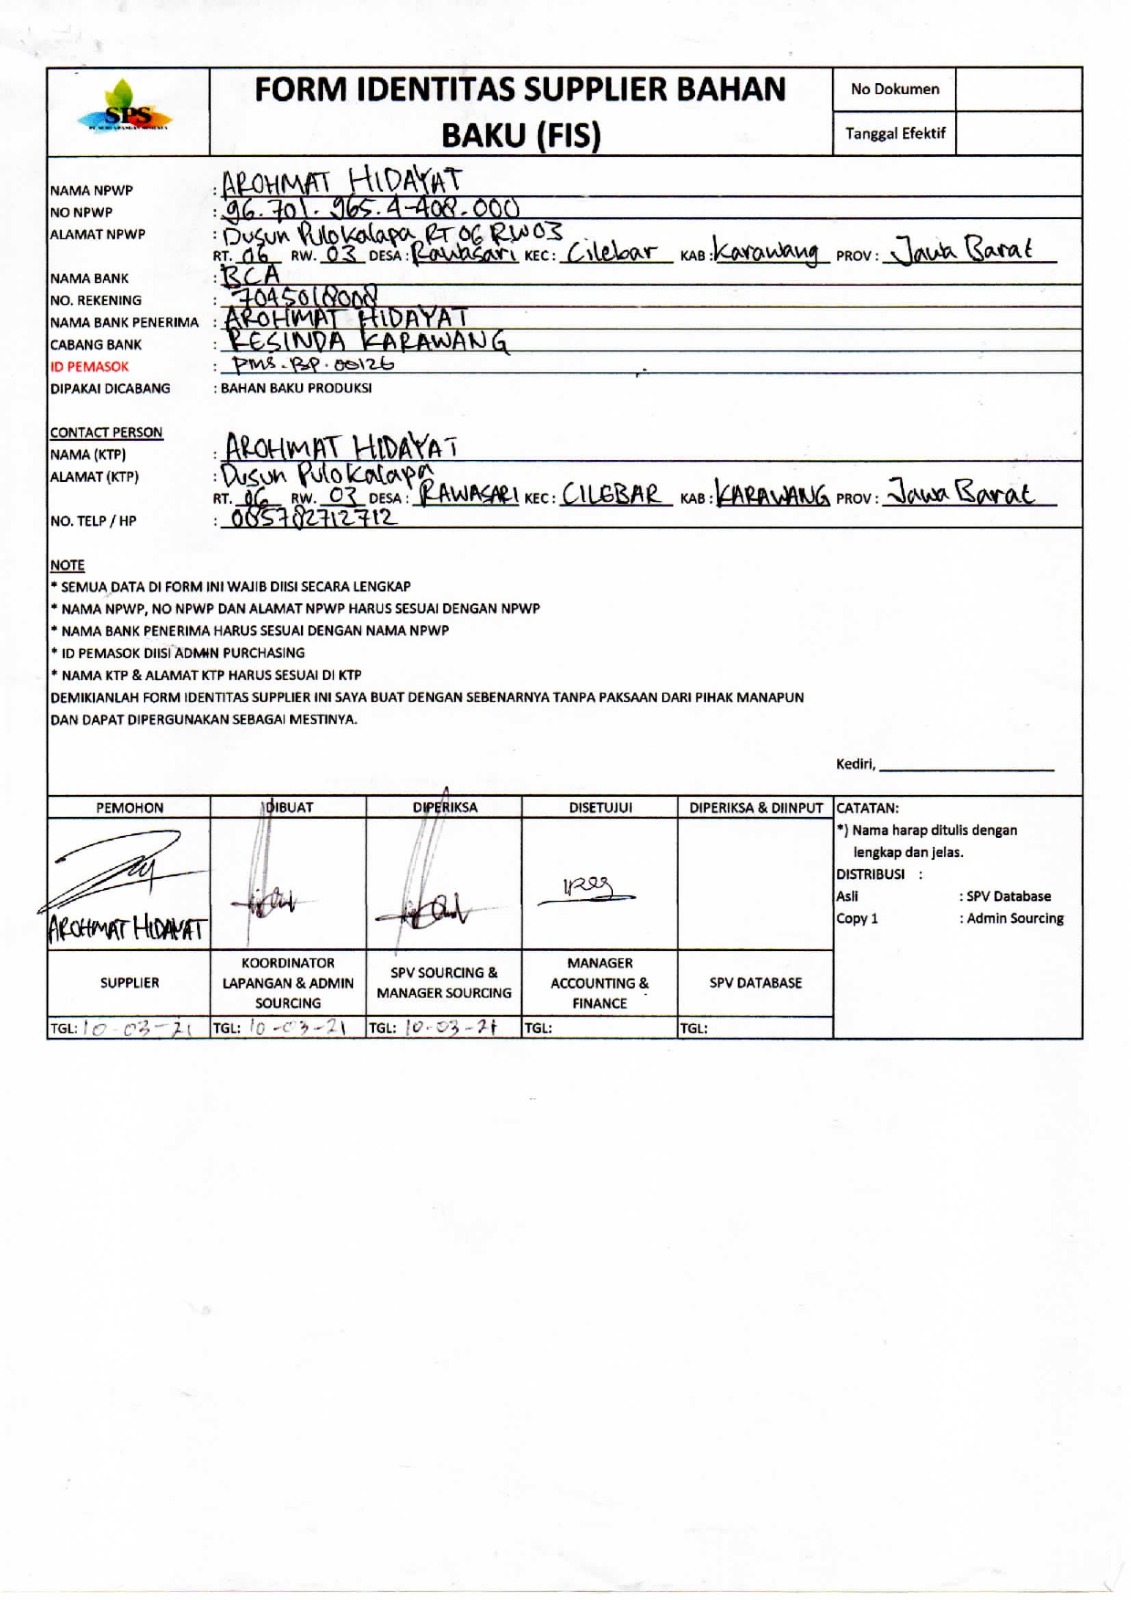 SPS
FORM IDENTITAS SUPPLIER BAHAN
BAKU (FIS)
No Dokumen
Tanggal Efektif
NAMA NPWP : AROHMAT HIDAYAT
NO NPWP : 96.701.965.4-408.000
ALAMAT NPWP : Dusun Pulokalapa RT 06 RW 03
RT. 06 RW. 03 DESA : Rawasari KEC : Cilebar KAB : Karawang PROV : Jawa Barat
NAMA BANK : BCA
NO. REKENING : 7045018008
NAMA BANK PENERIMA : AROHMAT HIDAYAT
CABANG BANK : RESINDA KARAWANG
ID PEMASOK : PMS.BP.00126
DIPAKAI DICABANG : BAHAN BAKU PRODUKSI
CONTACT PERSON
NAMA (KTP) : AROHMAT HIDAYAT
ALAMAT (KTP) : Dusun Pulokalapa
RT. 06 RW. 03 DESA : RAWASARI KEC : CILEBAR KAB : KARAWANG PROV : Jawa Barat
NO. TELP / HP : 085782712712
NOTE
* SEMUA DATA DI FORM INI WAJIB DIISI SECARA LENGKAP
* NAMA NPWP, NO NPWP DAN ALAMAT NPWP HARUS SESUAI DENGAN NPWP
* NAMA BANK PENERIMA HARUS SESUAI DENGAN NAMA NPWP
* ID PEMASOK DIISI ADMIN PURCHASING
* NAMA KTP & ALAMAT KTP HARUS SESUAI DI KTP
DEMIKIANLAH FORM IDENTITAS SUPPLIER INI SAYA BUAT DENGAN SEBENARNYA TANPA PAKSAAN DARI PIHAK MANAPUN
DAN DAPAT DIPERGUNAKAN SEBAGAI MESTINYA.
Kediri,
PEMOHON DIBUAT DIPERIKSA DISETUJUI DIPERIKSA & DIINPUT
AROHMAT HIDAYAT
SUPPLIER
KOORDINATOR
LAPANGAN & ADMIN
SOURCING
SPV SOURCING &
MANAGER SOURCING
MANAGER
ACCOUNTING &
FINANCE
SPV DATABASE
TGL: 10-03-21 TGL: 10-03-21 TGL: 10-03-21 TGL: TGL:
CATATAN:
*) Nama harap ditulis dengan
lengkap dan jelas.
DISTRIBUSI :
Asli : SPV Database
Copy 1 : Admin Sourcing